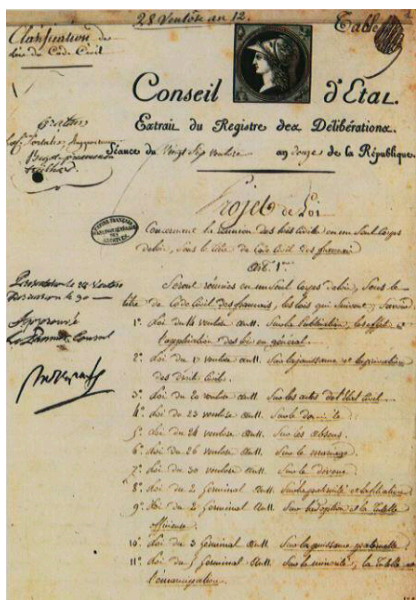 28 Ventôse an 12.
Classification des
lois du Code Civil
Table
Conseil d'Etat.
Extrait du Registre des Délibérations.
Séance du Vingt Sept ventose an douze de la République.
Projet de Loi
Concernant la réunion des lois civiles en un seul Corps
de loi, sous le titre de Code Civil des français
Art. 1er
Seront réunies en un seul Corps de loi, sous le
titre de Code Civil des français, les lois qui suivent, savoir
1º. Loi du 14 ventose an 11. Sur la publication, les effets et
l'application des lois en général.
2º. Loi du 17 ventose an 11. Sur la jouissance et la privation
des droits civils.
3º. Loi du 20 ventose an 11. Sur les actes de l'état civil.
4º. Loi du 23 ventose an 11. Sur le domicile
5º. Loi du 24 ventose an 11. Sur les absens.
6º. Loi du 26 ventose an 11. Sur le mariage
7º. Loi du 30 ventose an 11. Sur le divorce
8º. Loi du 2 Germinal an 11. Sur la paternité et la filiation
9º. Loi du 2 Germinal an 11. Sur l'adoption et la tutelle
officieuse.
10º. Loi du 3 Germinal an 11. Sur la puissance paternelle
11º. Loi du 5 Germinal an 11. Sur la minorité, la tutelle et
l'émancipation.
Présenté le 28 Ventose
Discussion le 30
Approuvé
le Premier Consul